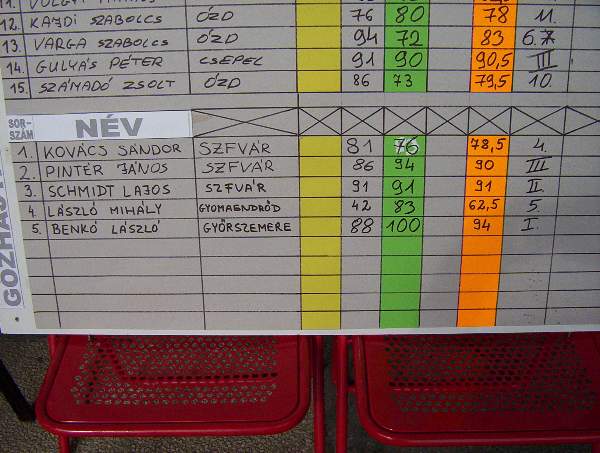 12. KAJDI SZABOLCS ÓZD 76 80 78 11.
13. VARGA SZABOLCS ÓZD 94 72 83 6.7
14. GULYÁS PÉTER CSEPEL 91 90 90,5 III
15. SZÁMADÓ ZSOLT ÓZD 86 73 79,5 10.
SOR-
SZÁM NÉV
1. KOVÁCS SÁNDOR SZFVÁR 81 76 78,5 4.
2. PINTÉR JÁNOS SZFVÁR 86 94 90 III
3. SCHMIDT LAJOS SZFVÁR 91 91 91 II.
4. LÁSZLÓ MIHÁLY GYOMAENDRŐD 42 83 62,5 5.
5. BENKŐ LÁSZLÓ GYŐRSZEMERE 88 100 94 I.